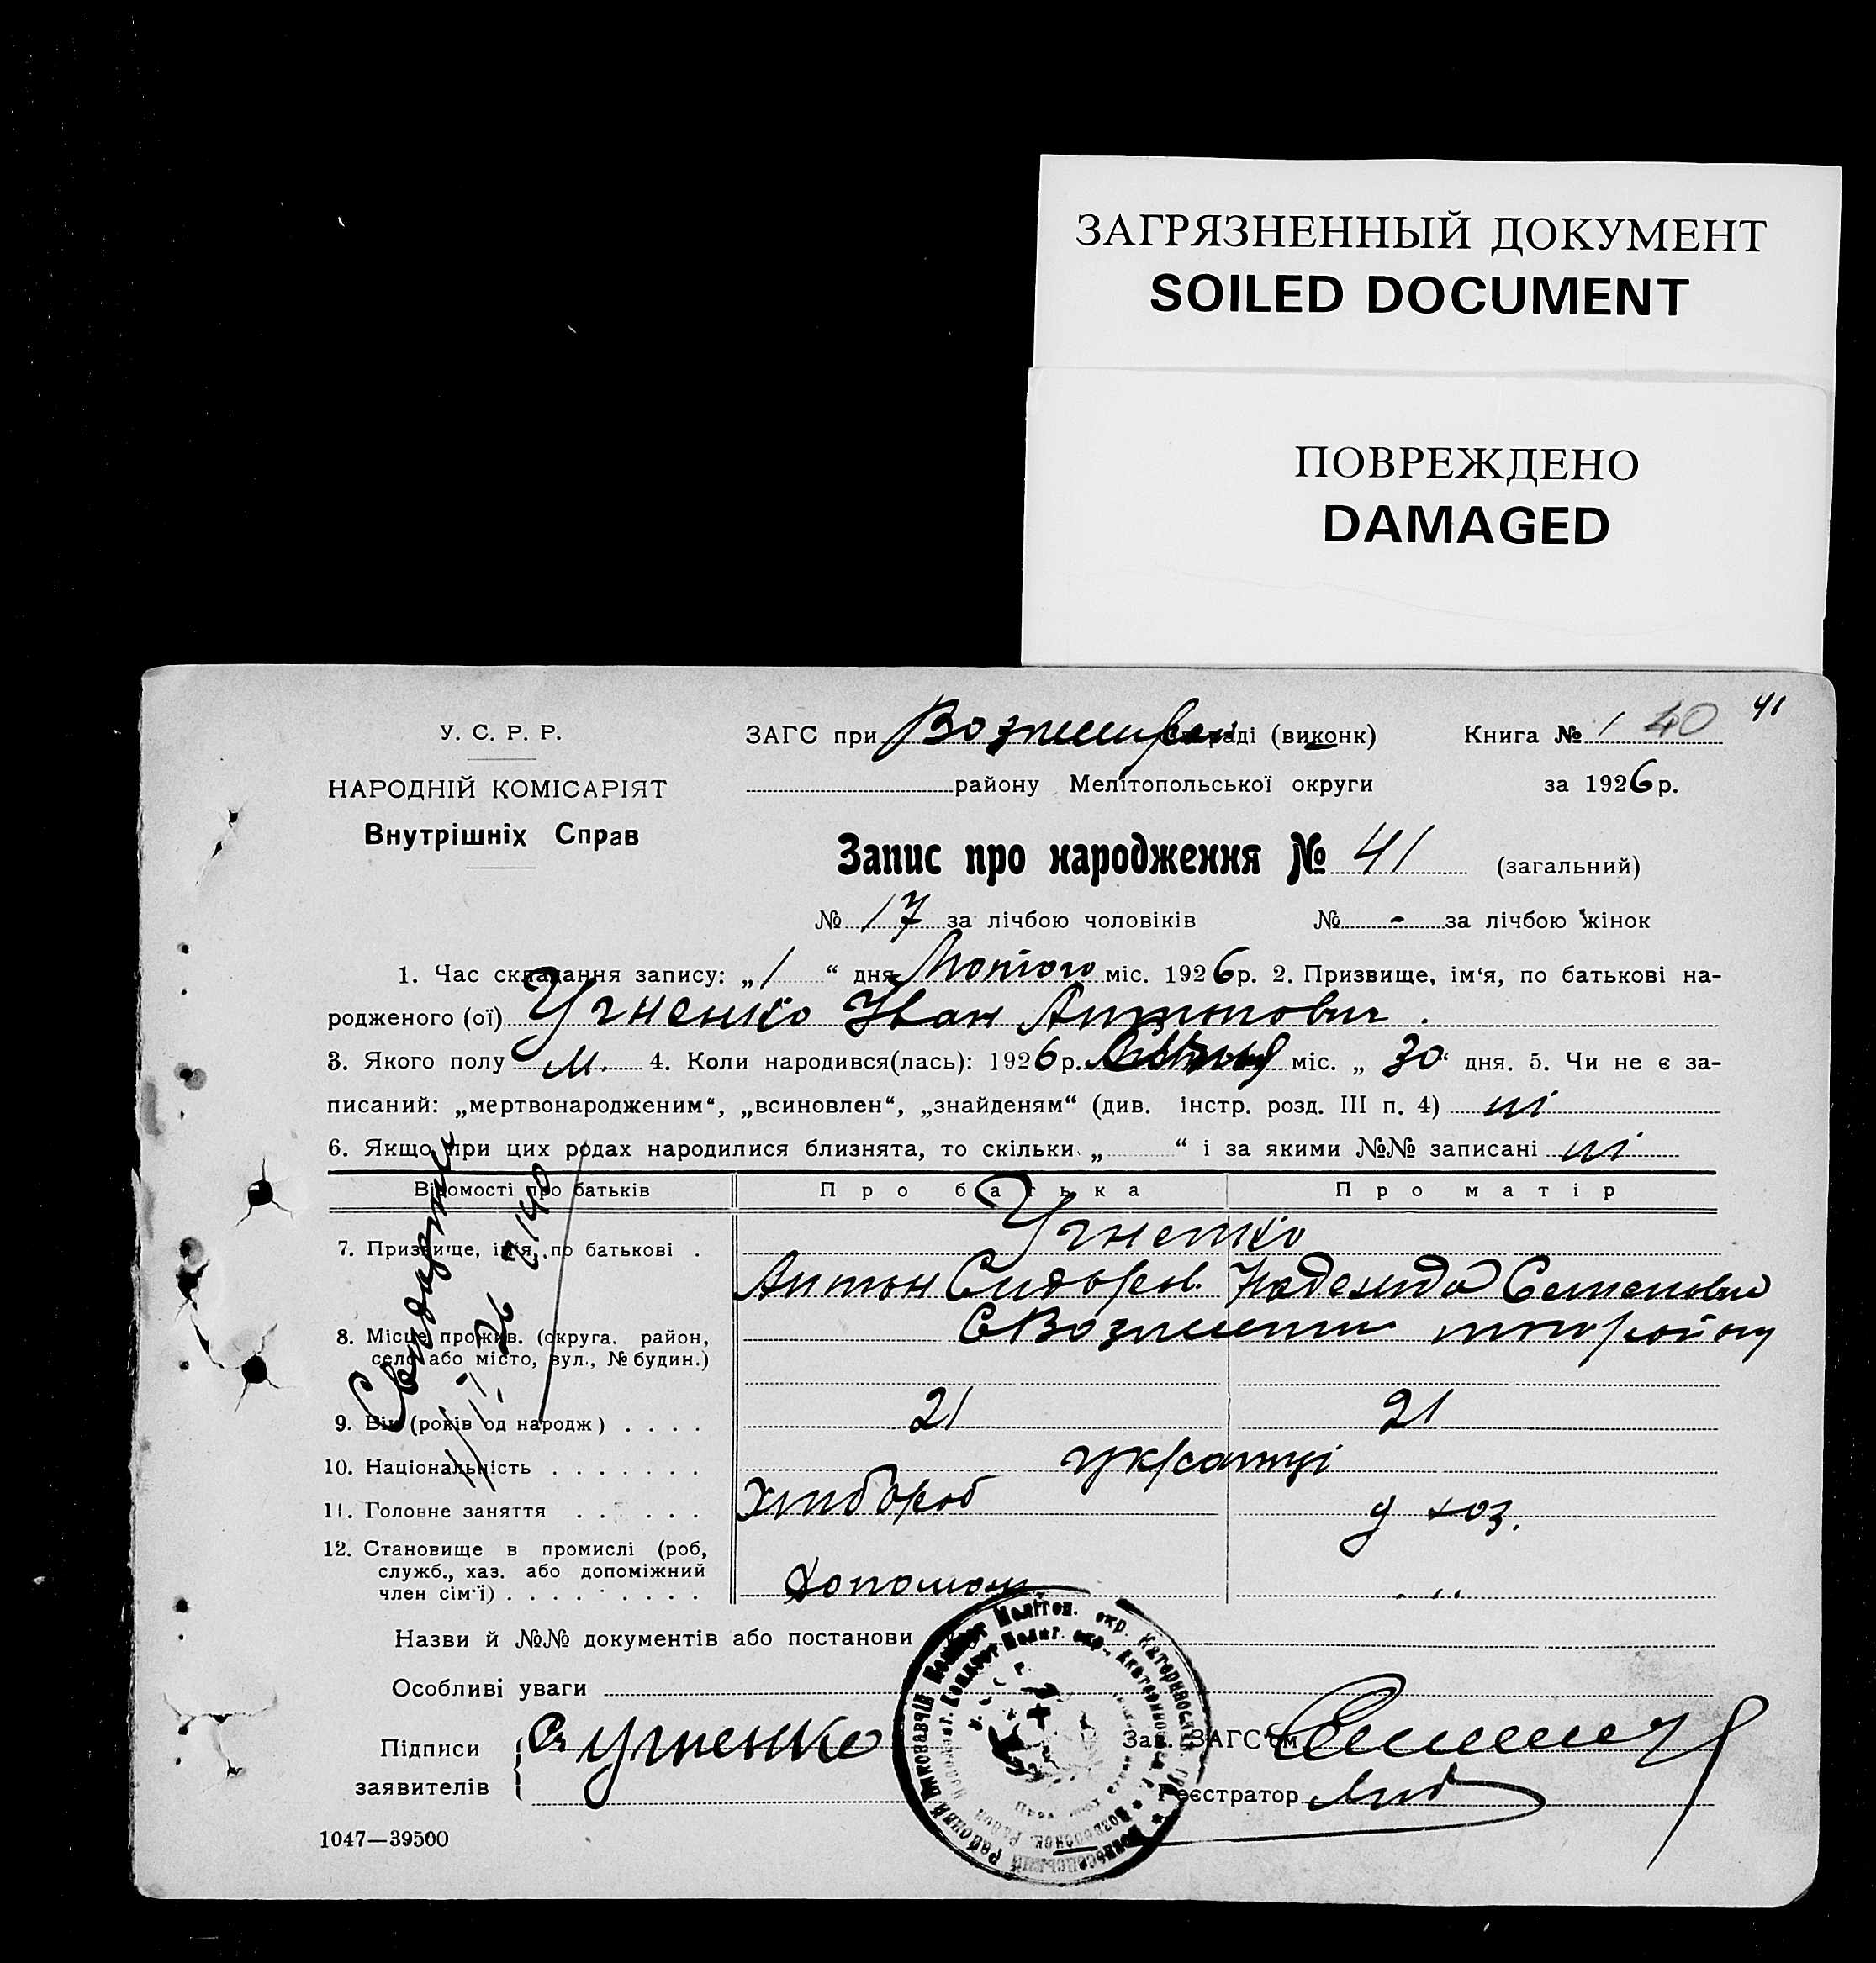 ЗАГРЯЗНЕННЫЙ ДОКУМЕНТ
SOILED DOCUMENT
ПОВРЕЖДЕНО
DAMAGED
41
У. С. Р. Р.
НАРОДНІЙ КОМІСАРІЯТ
Внутрішніх Справ
ЗАГС при раді (виконк)
Книга № 1 40
району Мелітопольської округи
за 1926 р.
Запис про народження № 41 (загальний)
№ 17 за лічбою чоловіків № - за лічбою жінок
1. Час складання запису: „1“ дня Лютого міс. 1926 р. 2. Призвище, ім‘я, по батькові на-
родженого (ої) Угненко Іван Антонович.
3. Якого полу м. 4. Коли народився(лась): 1926 р. міс. „30“ дня. 5. Чи не є за-
писаний: „мертвонародженим“, „всиновлен“, „знайденям“ (див. інстр. розд. III п. 4) ні
6. Якщо при цих родах народилися близнята, то скільки „ “ і за якими №№ записані ні
Відомості про батьків Про батька Про матір
7. Призвище, ім‘я, по батькові . Угненко
Антон Сидоров. Надежда Семеновна
8. Місце прожив. (округа, район,
село або місто, вул., № будин.)
9. Вік (років од народж) . . . . 21 21
10. Національність . . . . . . . українці
11. Головне заняття . . . . . . хлібороб д хоз.
12. Становище в промислі (роб,
служб., хаз. або допоміжний
член сім‘ї) . . . . . . . . допомож „
Назви й №№ документів або постанови
Особливі уваги
Підписи
заявителів
Угненко
Зав. ЗАГС‘ом
Реєстратор
1047—39500